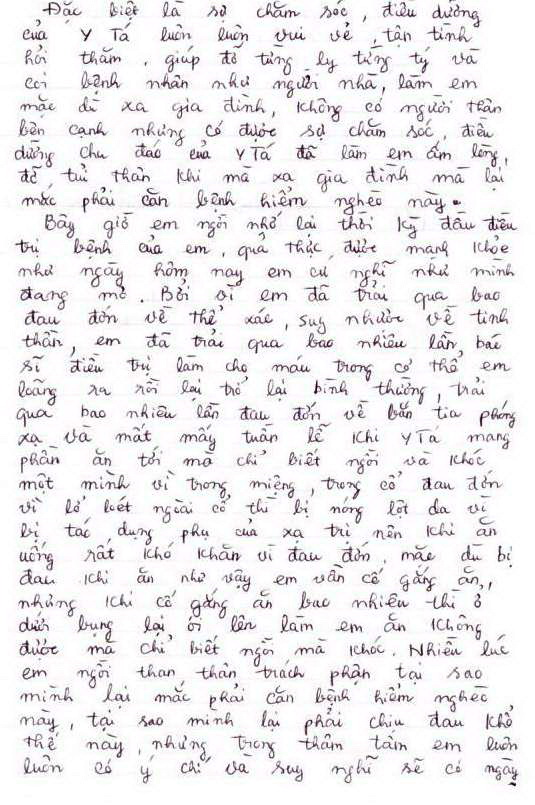 Đặc biệt là sự chăm sóc, điều dưỡng
của Y Tá luôn luôn vui vẻ, tận tình
hỏi thăm, giúp đỡ từng ly từng tý và
coi bệnh nhân như người nhà, làm em
mặc dù xa gia đình, không có người thân
bên cạnh nhưng có được sự chăm sóc, điều
dưỡng chu đáo của Y Tá đã làm em ấm lòng,
đỡ tủi thân khi mà xa gia đình mà lại
mắc phải căn bệnh hiểm nghèo này.
Bây giờ em ngồi nhớ lại thời kỳ đầu điều
trị bệnh của em, quả thực được mạnh khỏe
như ngày hôm nay em cứ nghĩ như mình
đang mơ. Bởi vì em đã trải qua bao
đau đớn về thể xác, suy nhược về tinh
thần, em đã trải qua bao nhiêu lần bác
sĩ điều trị làm cho máu trong cơ thể em
loãng ra rồi lại trở lại bình thường, trải
qua bao nhiêu lần đau đớn về bắn tia phóng
xạ và mất mấy tuần lễ khi Y Tá mang
phần ăn tới mà chỉ biết ngồi và khóc
một mình vì trong miệng, trong cổ đau đớn
vì lở loét ngoài cổ thì bị nóng lột da vì
bị tác dụng phụ của xạ trị nên khi ăn
uống rất khó khăn vì đau đớn, mặc dù bị
đau khi ăn như vậy em vẫn cố gắng ăn,
nhưng khi cố gắng ăn bao nhiêu thì ở
dưới bụng lại ói lên làm em ăn không
được mà chỉ biết ngồi mà khóc. Nhiều lúc
em ngồi than, thân trách phận tại sao
mình lại mắc phải căn bệnh hiểm nghèo
này, tại sao mình lại phải chịu đau khổ
thế này, nhưng trong thâm tâm em luôn
luôn có ý chí và suy nghĩ sẽ có ngày